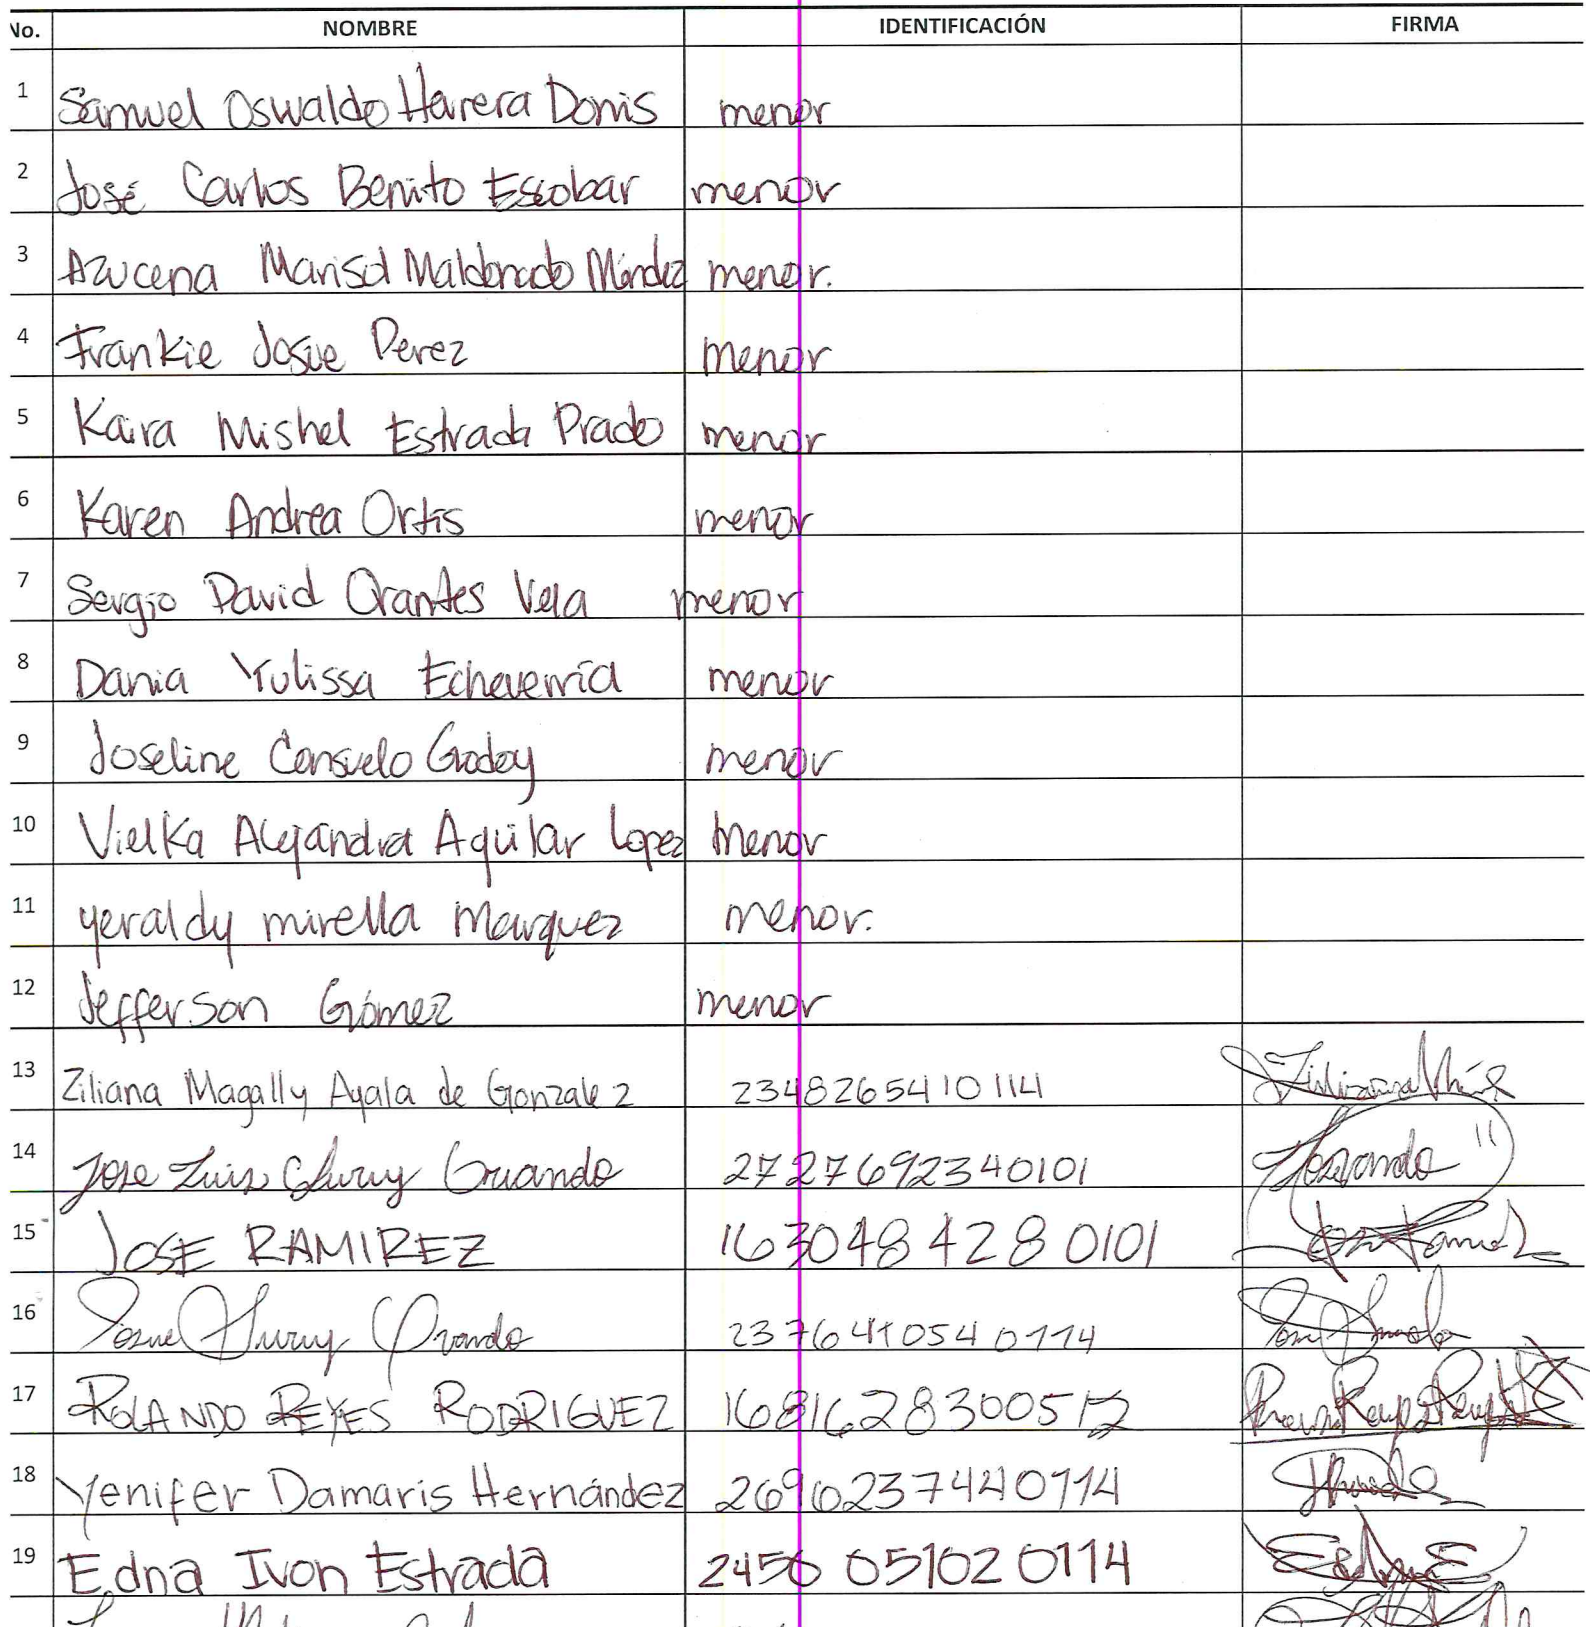 No. NOMBRE IDENTIFICACIÓN FIRMA
1 Samuel Oswaldo Herrera Donis menor
2 José Carlos Benito Escobar menor
3 Azucena Marisol Maldonado Méndez menor.
4 Frankie Josue Perez menor
5 Kaira Mishel Estrada Prado menor
6 Karen Andrea Ortis menor
7 Sergio David Orantes Vela menor
8 Dania Yulissa Echeverría menor
9 Joseline Consuelo Godoy menor
10 Vielka Alejandra Aguilar Lopez menor
11 yeraldy mirella marquez menor.
12 Jefferson Gómez menor
13 Ziliana Magally Ayala de Gonzalez 2348265410114
14 Jose Luis 2727692340101
15 JOSE RAMIREZ 1630484280101
16 2376410540114
17 ROLANDO REYES RODRIGUEZ 1681628300512
18 Yenifer Damaris Hernández 2690237440114
19 Edna Ivon Estrada 2450 051020114